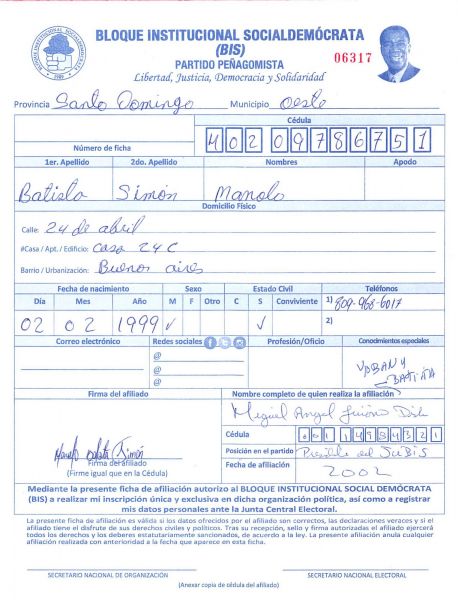 BLOQUE INSTITUCIONAL SOCIALDEMÓCRATA
(BIS)
06317
PARTIDO PEÑAGOMISTA
Libertad, Justicia, Democracia y Solidaridad
Provincia Santo Domingo Municipio Oeste
Cédula
Número de ficha
40209786751
1er. Apellido 2do. Apellido Nombres Apodo
Batista Simón Manolo
Domicilio Físico
Calle: 24 de abril
#Casa / Apt. / Edificio: Casa 24 C
Barrio / Urbanización: Buenos aires
Fecha de nacimiento Sexo Estado Civil Teléfonos
Día Mes Año M F Otro C S Conviviente 1) 809-968-6017
02 02 1999 ✓ ✓ 2)
Correo electrónico Redes sociales Profesión/Oficio Conocimientos especiales
@
@
@
BATISTA
Firma del afiliado Nombre completo de quien realiza la afiliación
Miguel Angel
Cédula
Manolo Batista Simón
Firma del afiliado
(Firme igual que en la Cédula)
Posición en el partido
Fecha de afiliación 2002
Mediante la presente ficha de afiliación autorizo al BLOQUE INSTITUCIONAL SOCIAL DEMÓCRATA
(BIS) a realizar mi inscripción única y exclusiva en dicha organización política, así como a registrar
mis datos personales ante la Junta Central Electoral.
La presente ficha de afiliación es válida si los datos ofrecidos por el afiliado son correctos, las declaraciones veraces y si el
afiliado tiene el disfrute de sus derechos civiles y políticos. Tras su recepción, sello y firma autorizadas el afiliado ejercerá
todos los derechos y los deberes estatutariamente sancionados, de acuerdo a la ley. La presente afiliación anula cualquier
afiliación realizada con anterioridad a la fecha que aparece en esta ficha.
SECRETARIO NACIONAL DE ORGANIZACIÓN SECRETARIO NACIONAL ELECTORAL
(Anexar copia de cédula del afiliado)